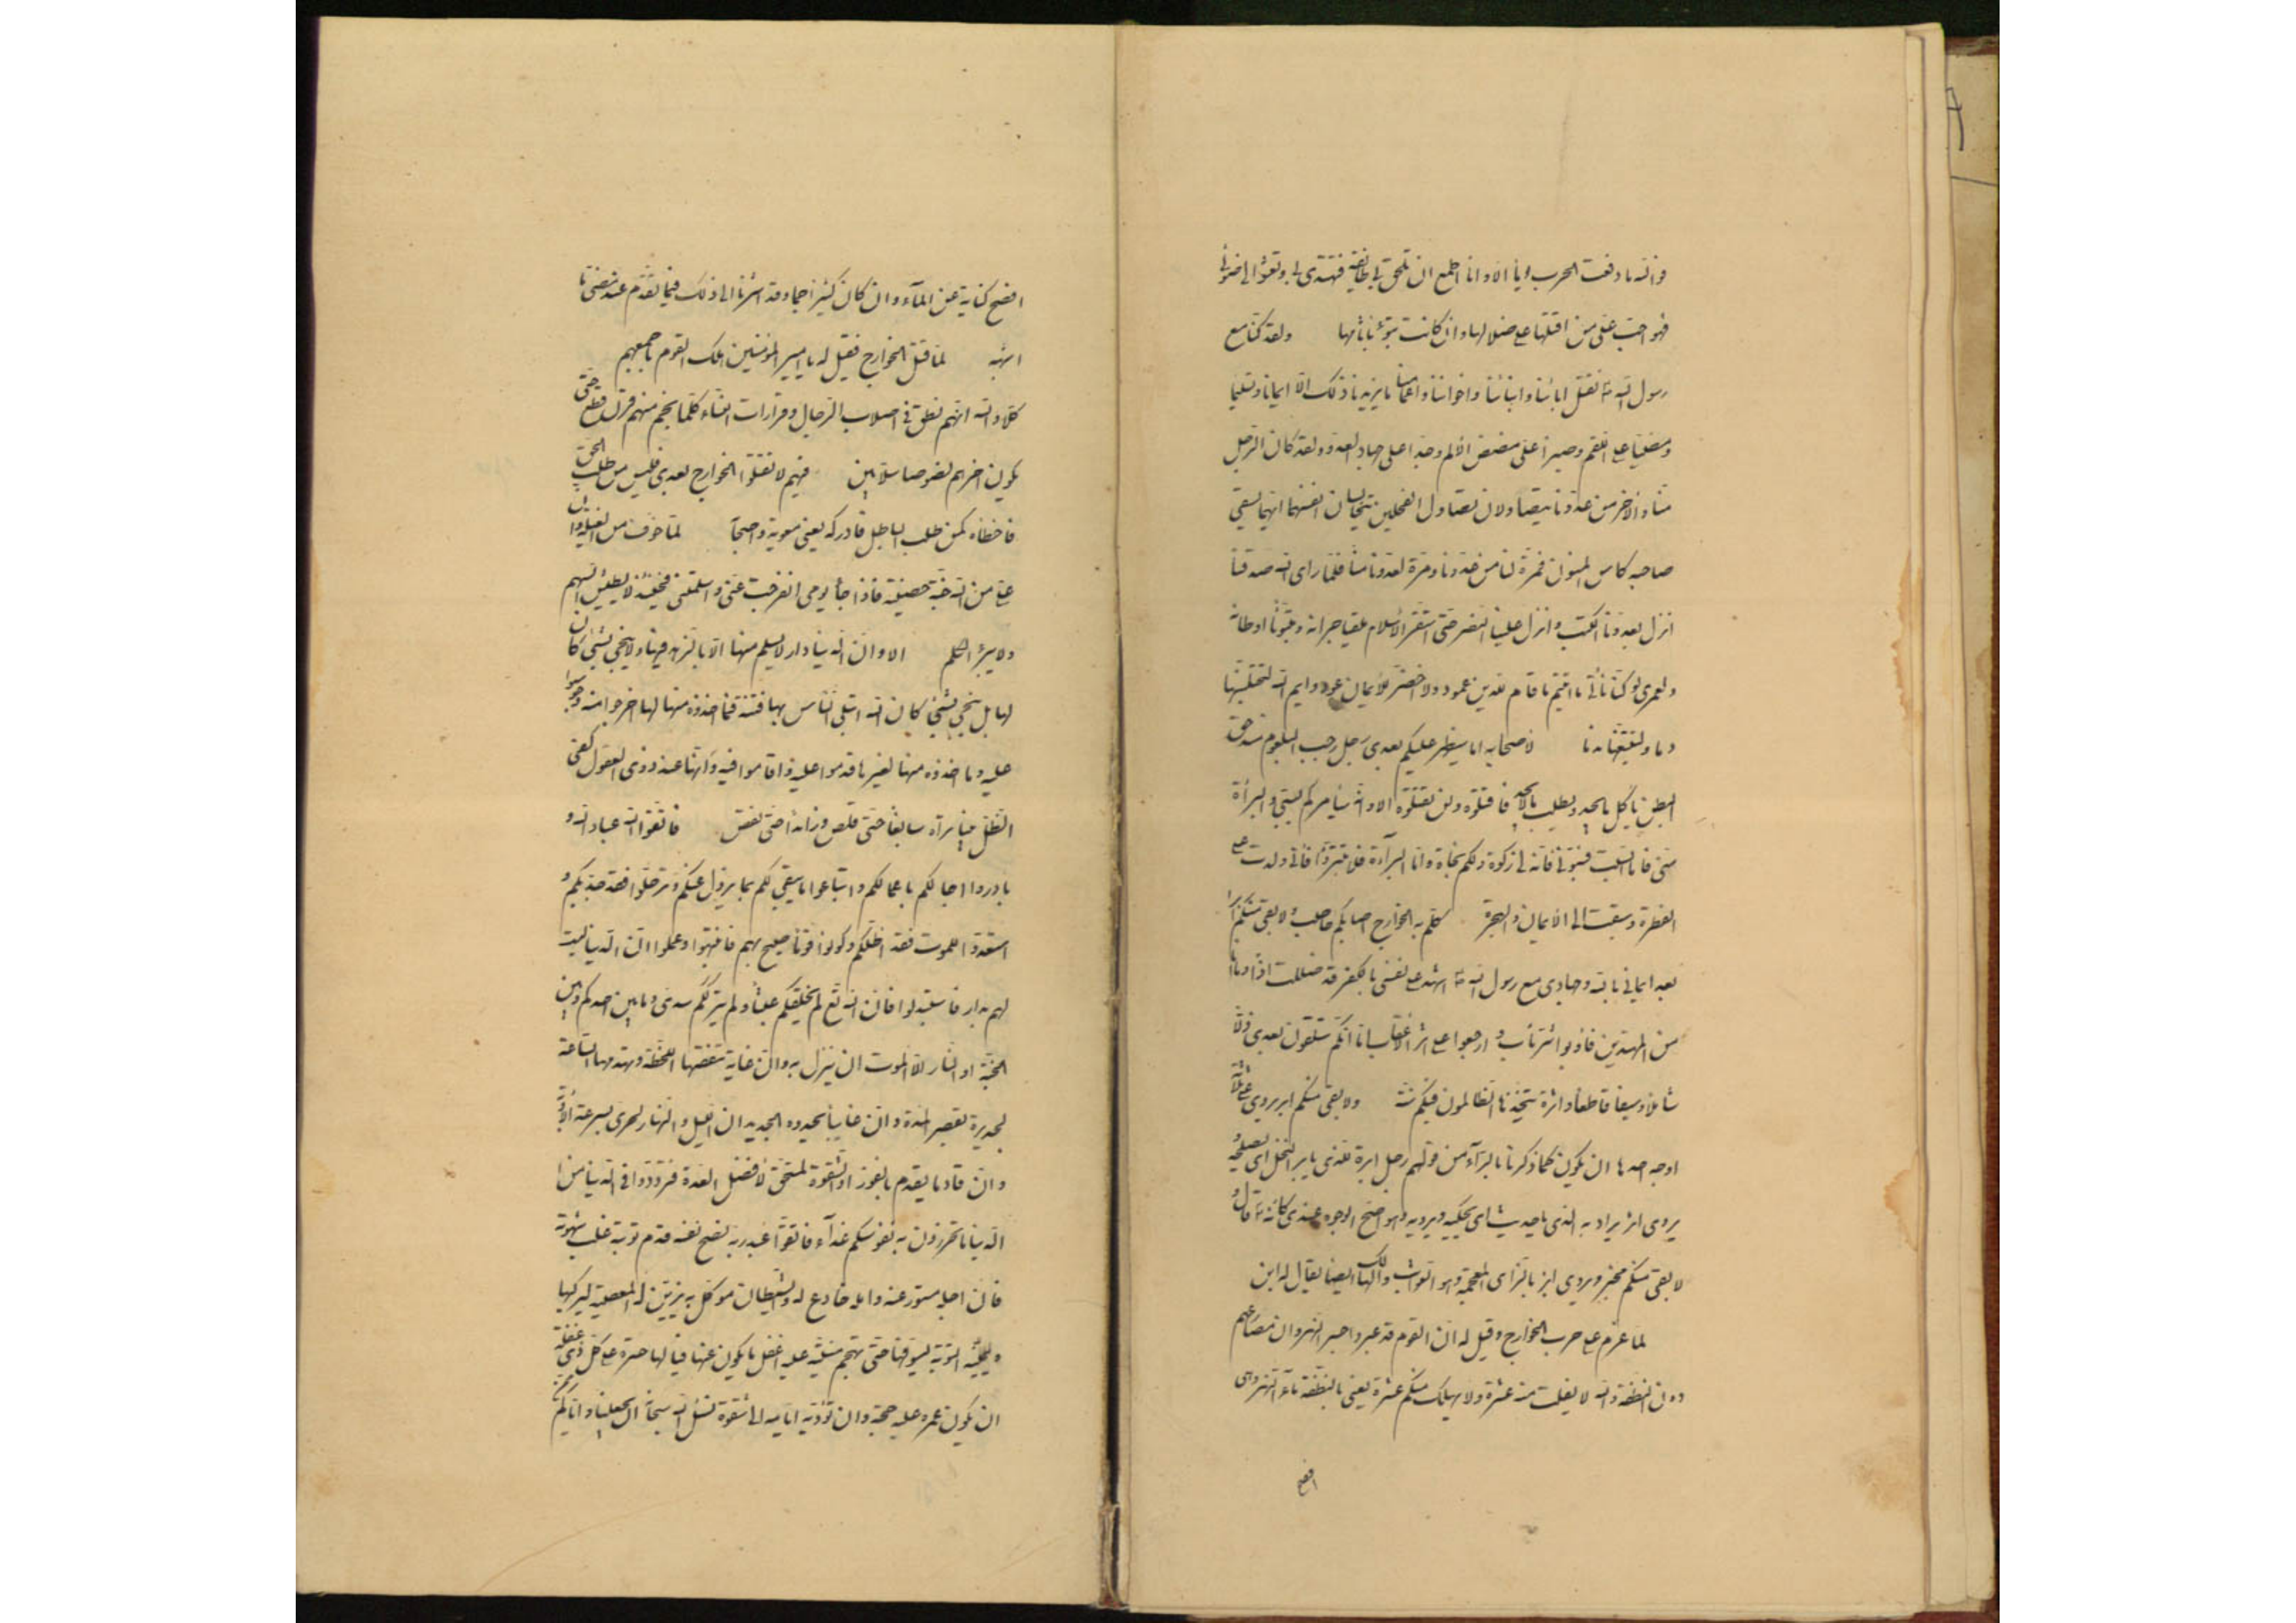 فوالله ما دفعت الحرب يوما الا وانا اطمع ان تلحق بي طائفة فتهتدى بي وتعشوا الى ضوئى
فهو احب على من اقتلها على ضلالها وان كانت تبوء باثامها ولقد كنا مع
رسول الله ص نقتل ابائنا وابنائنا واخواننا واعمامنا ما يزيدنا ذلك الا ايمانا وتسليما
ومضيا على اللقم وصبرا على مضض الالم وجدا على جهاد العدو ولقد كان الرجل
منا والاخر من عدونا يتصاولان تصاول الفحلين يتخالسان انفسهما ايهما يسقى
صاحبه كاس المنون فمرة لنا من عدونا ومرة لعدونا منا فلما راى الله صدقنا
انزل بعدونا الكبت وانزل علينا النصر حتى استقر الاسلام ملقيا جرانه ومتبوئا اوطانه
ولعمرى لو كنا ناتى ما اتيتم ما قام للدين عمود ولا اخضر للايمان عود وايم الله لتحتلبنها
دما ولتتبعنها ندما لاصحابه اما سيظهر عليكم بعدى رجل رحب البلعوم مندحق
البطن ياكل ما يجد ويطلب ما لا يجد فاقتلوه ولن تقتلوه الا وانه سيامركم بسبى والبراءة
منى فاما السب فسبونى فانه لى زكوة ولكم نجاة واما البراءة فلا تتبرؤا فانى ولدت على
الفطرة وسبقت الى الايمان والهجرة كلم به الخوارج اصابكم حاصب ولا بقى منكم ابر ا
بعد ايمانى بالله وجهادى مع رسول الله ص اشهد على نفسى بالكفر قد ضللت اذا وما انا
من المهتدين فاوبوا شر ماب وارجعوا على اثر الاعقاب اما انكم ستلقون بعدى ذلا
شاملا وسيفا قاطعا واثرة يتخذها الظالمون فيكم سنة ولا بقى منكم ابر يروى على ثلاثة
اوجه احدها ان يكون كما ذكرنا بالراء من قولهم رجل ابر للذى يابر النخل اى يصلحه و
يروى اثر يراد به الذى ياثر الحديث اى يحكيه ويرويه وهو اصح الوجوه عندى كانه ع قال
لا بقى منكم مخبر ويروى ابز بالزاى المعجمة وهو الواثب والهالك ايضا يقال له ابز
لما عزم على حرب الخوارج وقيل له ان القوم قد عبروا جسر النهروان مصارعهم
دون النطفة والله لا يفلت منه عشرة ولا يهلك منكم عشرة يعنى بالنطفة ماء النهر وهى
افصح
افصح كناية عن الماء وان كان كثيرا جما وقد اشرنا الى ذلك فيما تقدم عند مضى ما
اشبهه لما قتل الخوارج فقيل له يا امير المؤمنين هلك القوم باجمعهم
كلا والله انهم نطف فى اصلاب الرجال وقرارات النساء كلما نجم منهم قرن قطع حتى
يكون اخرهم لصوصا سلابين فيهم لا تقتلوا الخوارج بعدى فليس من طلب الحق
فاخطاه كمن طلب الباطل فادركه يعنى معوية واصحابه لما خوف من الغيلة وان
على من الله جنة حصينة فاذا جاء يومى انفرجت عنى واسلمتنى فحينئذ لا يطيش السهم
ولا يبرء الكلم الا وان الدنيا دار لا يسلم منها الا بالزهد فيها ولا ينجى بشئ كان
لها بل ينجى بشئ كان الله ابتلى الناس بها فتنة فما اخذوه منها لها اخرجوا منه وحوسبوا
عليه وما اخذوه منها لغيرها قدموا عليه واقاموا فيه وانها عند ذوى العقول كفئ
الظل بينا تراه سابغا حتى قلص وزائدا حتى نقص فاتقوا الله عباد الله و
بادروا اجالكم باعمالكم وابتاعوا ما يبقى لكم بما يزول عنكم وترحلوا فقد جد بكم و
استعدوا للموت فقد اظلكم وكونوا قوما صيح بهم فانتبهوا وعملوا ان الدنيا ليست
لهم بدار فاستبدلوا فان الله تع لم يخلقكم عبثا ولم يترككم سدى وما بين احدكم وبين
الجنة او النار الا الموت ان ينزل به وان غاية تنقصها اللحظة وتهدمها الساعة
لجديرة بقصر المدة وان غائبا يحدوه الجديدان الليل والنهار لحرى بسرعة الاوبة
وان قادما يقدم بالفوز او الشقوة لمستحق لافضل العدة فتزودوا فى الدنيا من
الدنيا ما تحرزون به نفوسكم غدا فاتقى عبد ربه نصح نفسه قدم توبته غلب شهوته
فان اجله مستور عنه وامله خادع له والشيطان موكل به يزين له المعصية ليركبها
ويمنيه التوبة ليسوفها حتى تهجم منيته عليه اغفل ما يكون عنها فيا لها حسرة على كل ذى غفلة
ان يكون عمره عليه حجة وان تؤديه ايامه الى شقوة نسئل الله سبحانه ان يجعلنا واياكم